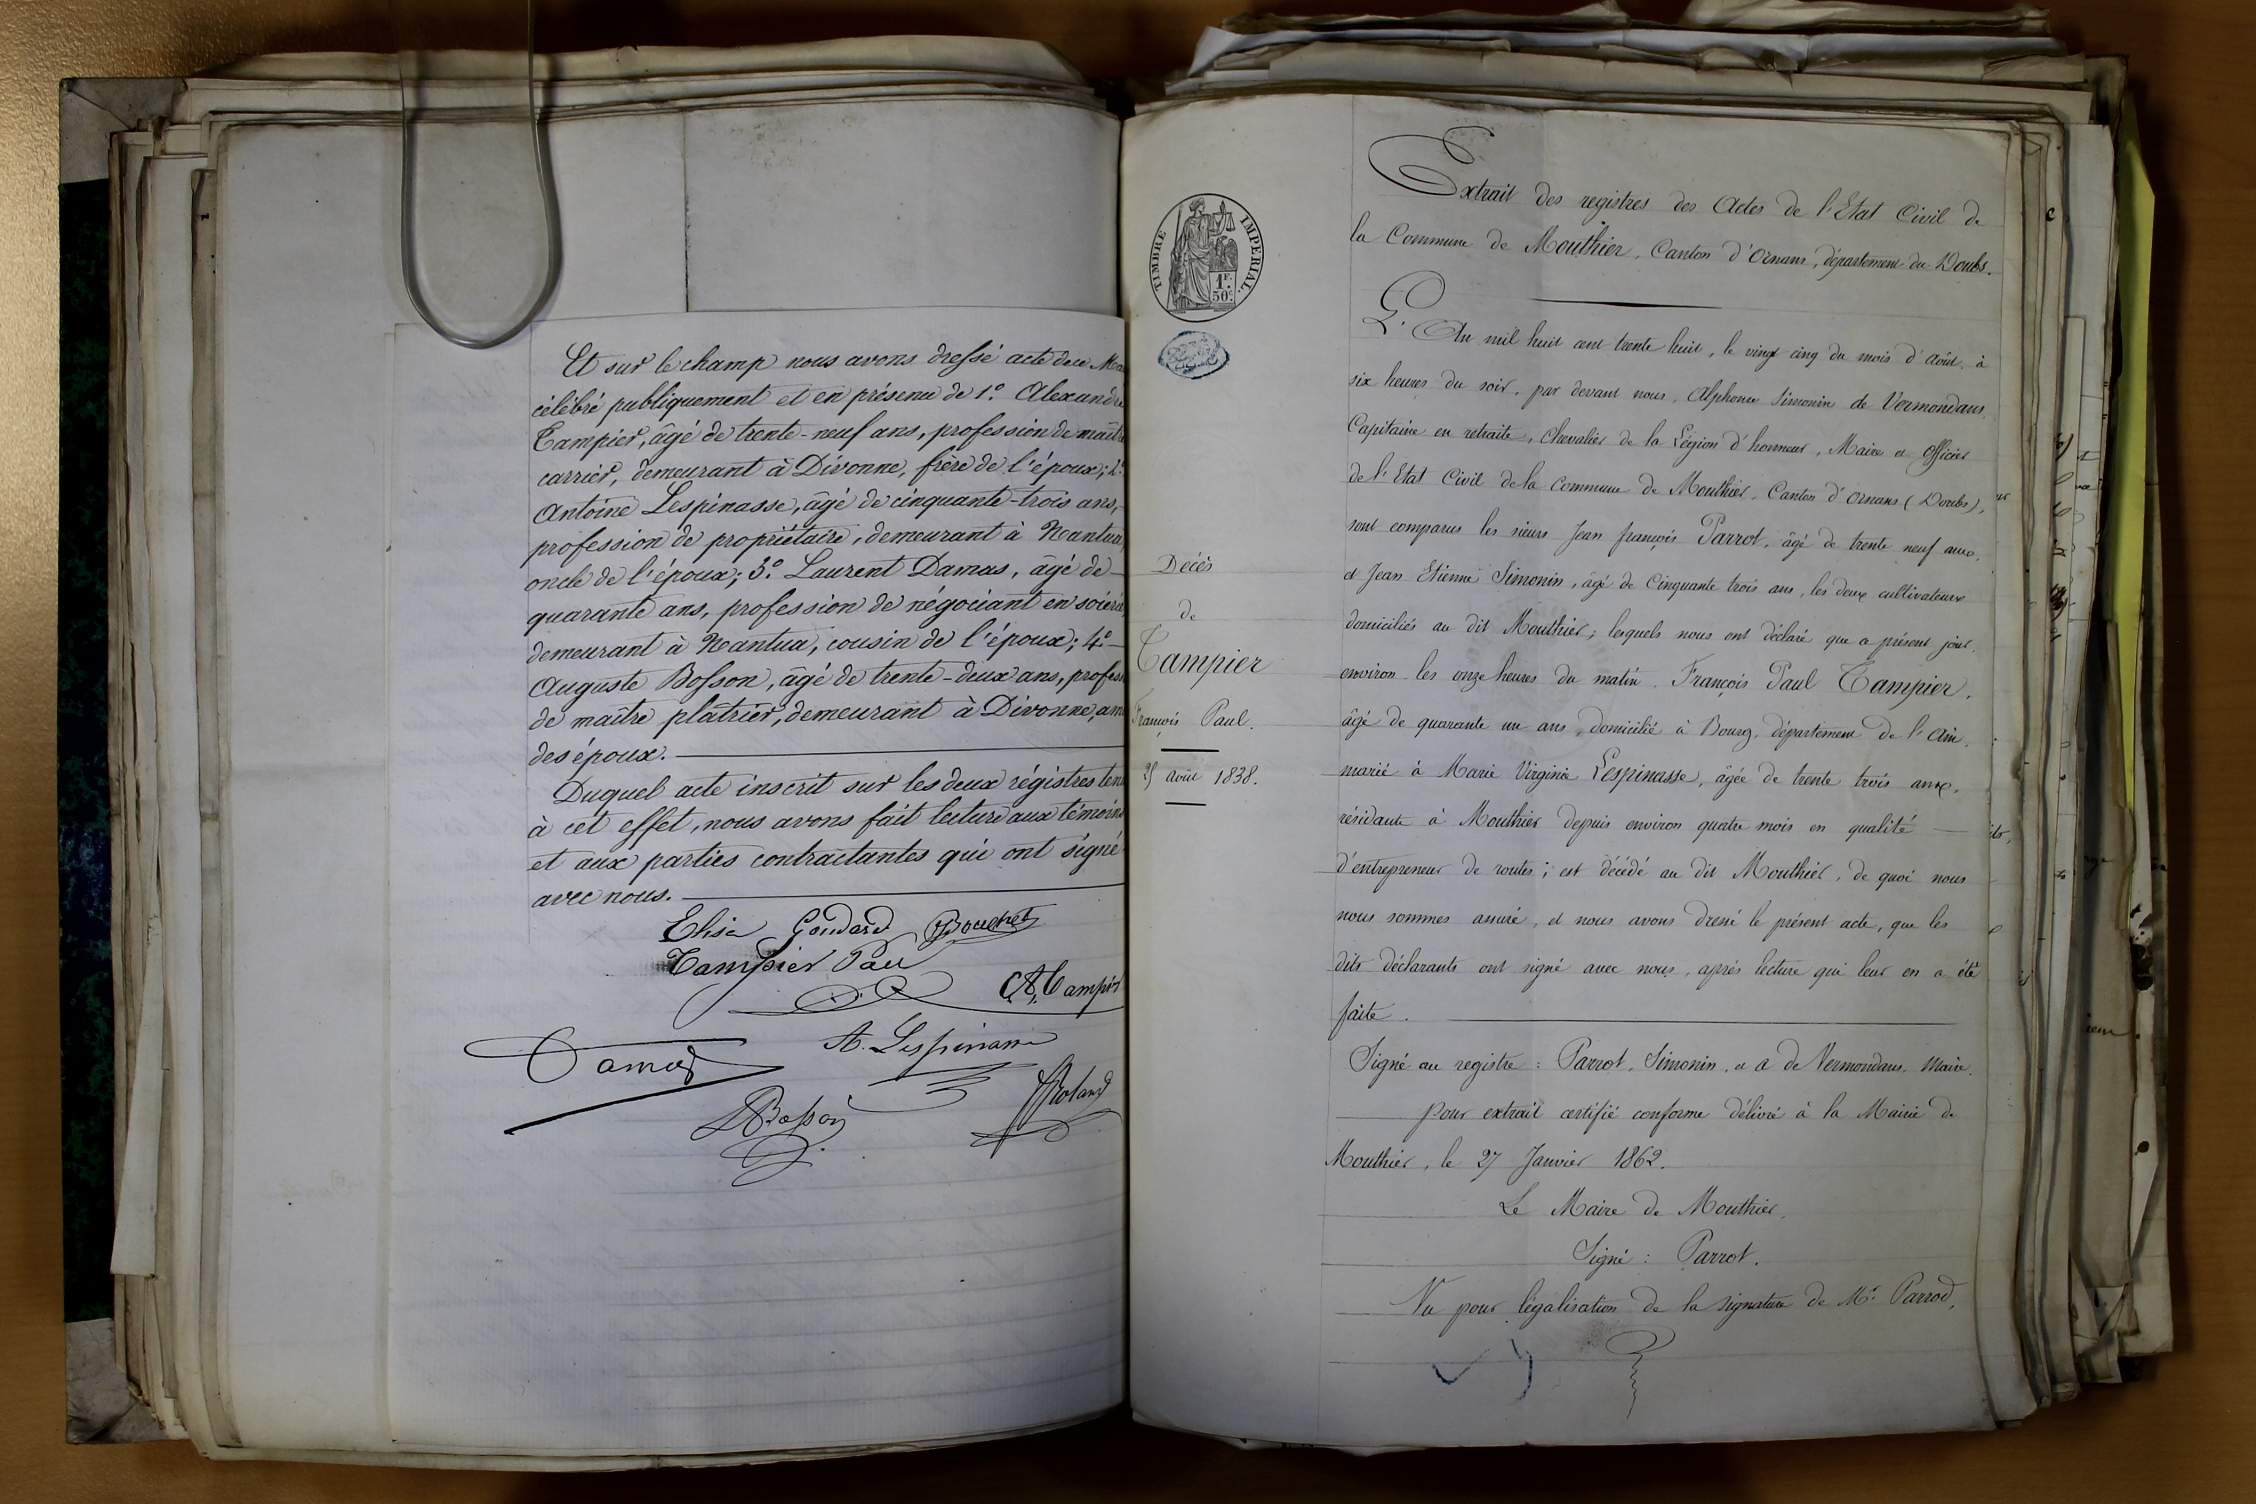 Et sur le champ nous avons dressé acte de ce
célébré publiquement et en présence de 1.° Alexandre
Tampier, âgé de trente-neuf ans, profession de maître
carrier, demeurant à Divonne, frère de l'époux; 2.°
Antoine Lespinasse, âgé de cinquante-trois ans,
profession de propriétaire, demeurant à Nantua,
oncle de l'époux; 3.° Laurent Damas, âgé de
quarante ans, profession de négociant en soierie
demeurant à Nantua, cousin de l'époux; 4.°
Auguste Bosson, âgé de trente-deux ans, profes
de maître plâtrier, demeurant à Divonne, ami
des époux.
Duquel acte inscrit sur les deux régistres
à cet effet, nous avons fait lecture aux témoins
et aux parties contractantes qui ont signé
avec nous.
Elisa Goudard Bouchet
Tampier Paul
A. Tampier
Damas
A. Lespinasse
Bosson
Roland
TIMBRE IMPERIAL.
1F.
50c.
Décès
de
Tampier
François Paul.
25 août 1838.
Extrait des registres des Actes de l'Etat Civil de
la Commune de Mouthier, Canton d'Ornans, département du Doubs.
L'An mil huit cent trente huit, le vingt cinq du mois d'Août, à
six heures du soir, par devant nous, Alphonse Simonin de Vermondans,
Capitaine en retraite, Chevalier de la Légion d'honneur, Maire et Officier
de l'Etat Civil de la Commune de Mouthier, Canton d'Ornans (Doubs),
sont comparus les sieurs Jean François Parrot, âgé de trente neuf ans,
et Jean Etienne Simonin, âgé de Cinquante trois ans, les deux cultivateurs
domiciliés au dit Mouthier; lesquels nous ont déclaré que a présent jour,
environ les onze heures du matin, François Paul Tampier,
âgé de quarante un ans, domicilié à Bourg, département de l'Ain,
marié à Marie Virginie Lespinasse, âgée de trente trois ans,
résidante à Mouthier depuis environ quatre mois en qualité
d'entrepreneur de routes; est décédé au dit Mouthier, de quoi nous
nous sommes assuré, et nous avons dressé le présent acte, que les
dits déclarants ont signé avec nous, après lecture qui leur en a été
faite.
Signé au registre: Parrot, Simonin, et a de Vermondans, Maire.
Pour extrait certifié conforme délivré à la Mairie de
Mouthier, le 27 Janvier 1862.
Le Maire de Mouthier,
Signé: Parrot.
Vu pour légalisation de la signature de Mr. Parrod,